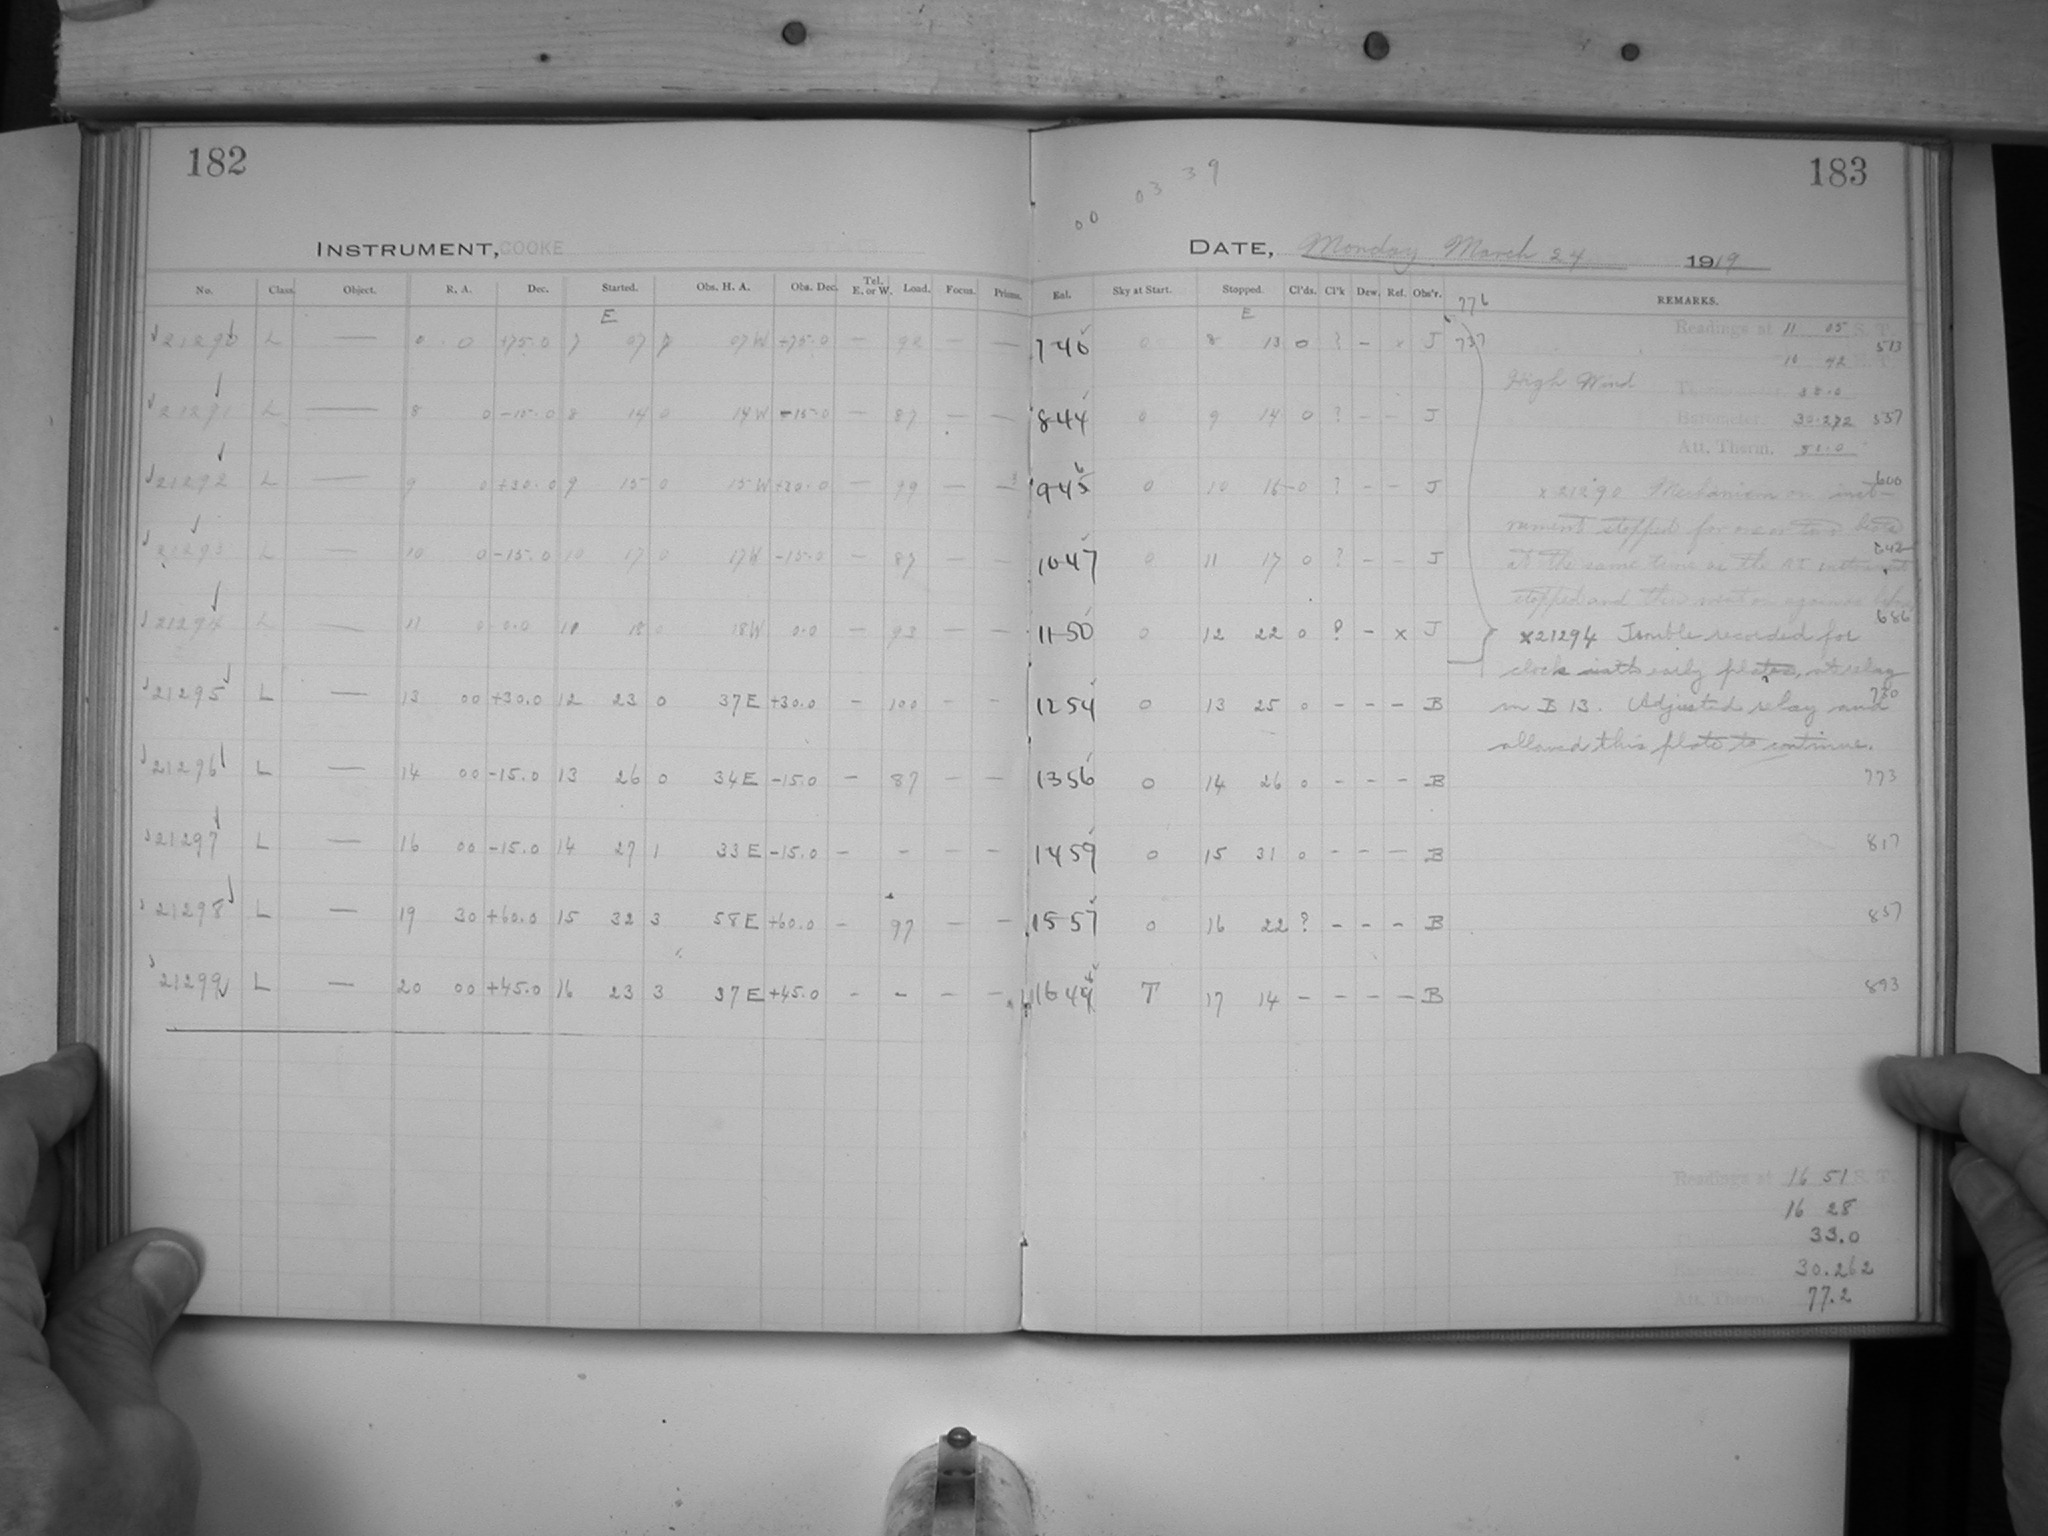 182
INSTRUMENT, COOKE
No. Class. Object. R. A. Dec. Started. Obs. H. A. Obs. Dec. Tel. E. or W. Load. Focus. Prisms.
E
21290 L — 0 0 +75.0 7 07 07 W +75.0 — 92 — —
21291 L — 8 0 -15.0 8 14 0 14 W -15.0 — 87 — —
21292 L — 9 0 +30.0 9 15 0 15 W +30.0 — 99 — —
21293 L — 10 0 -15.0 10 17 0 17 W -15.0 — 87 — —
21294 L — 11 0 0.0 11 18 0 18 W 0.0 — 93 — —
21295 L — 13 00 +30.0 12 23 0 37 E +30.0 - 100 - -
21296 L — 14 00 -15.0 13 26 0 34 E -15.0 — 87 — —
21297 L — 16 00 -15.0 14 27 1 33 E -15.0 — - — —
21298 L — 19 30 +60.0 15 32 3 58 E +60.0 - 97 — —
21299 L — 20 00 +45.0 16 23 3 37 E +45.0 - - — —
00 03 39
183
DATE, Monday March 24 1919
Exl. Sky at Start. Stopped. Cl'ds. Cl'k Dew. Ref. Obs'r. 776 REMARKS.
E
746 0 8 13 0 ? - x J 737
844 0 9 14 0 ? - - J
946 0 10 16 0 ? - - J
1047 0 11 17 0 ? - - J
1150 0 12 22 0 ? - x J
1254 0 13 25 0 - - - B
1356 0 14 26 0 - - - B
1459 0 15 31 0 - - - B
1557 0 16 22 ? - - - B
1649 T 17 14 - - - - B
Readings at 11 05 S. T.
513
10 42
High Wind
38.0
Barometer, 30.272 557
Att. Therm. 51.0
600
x 21290 Mechanism on inst-
rument stopped for one or two
at the same time as the
stopped and then went on again as
686
x 21294 Trouble recorded for
clock with early plates, at relay
730
in B 13. Adjusted relay and
allowed this plate to continue.
773
817
857
893
Readings at 16 51 S. T.
16 28
33.0
30.262
Att. Therm. 77.2